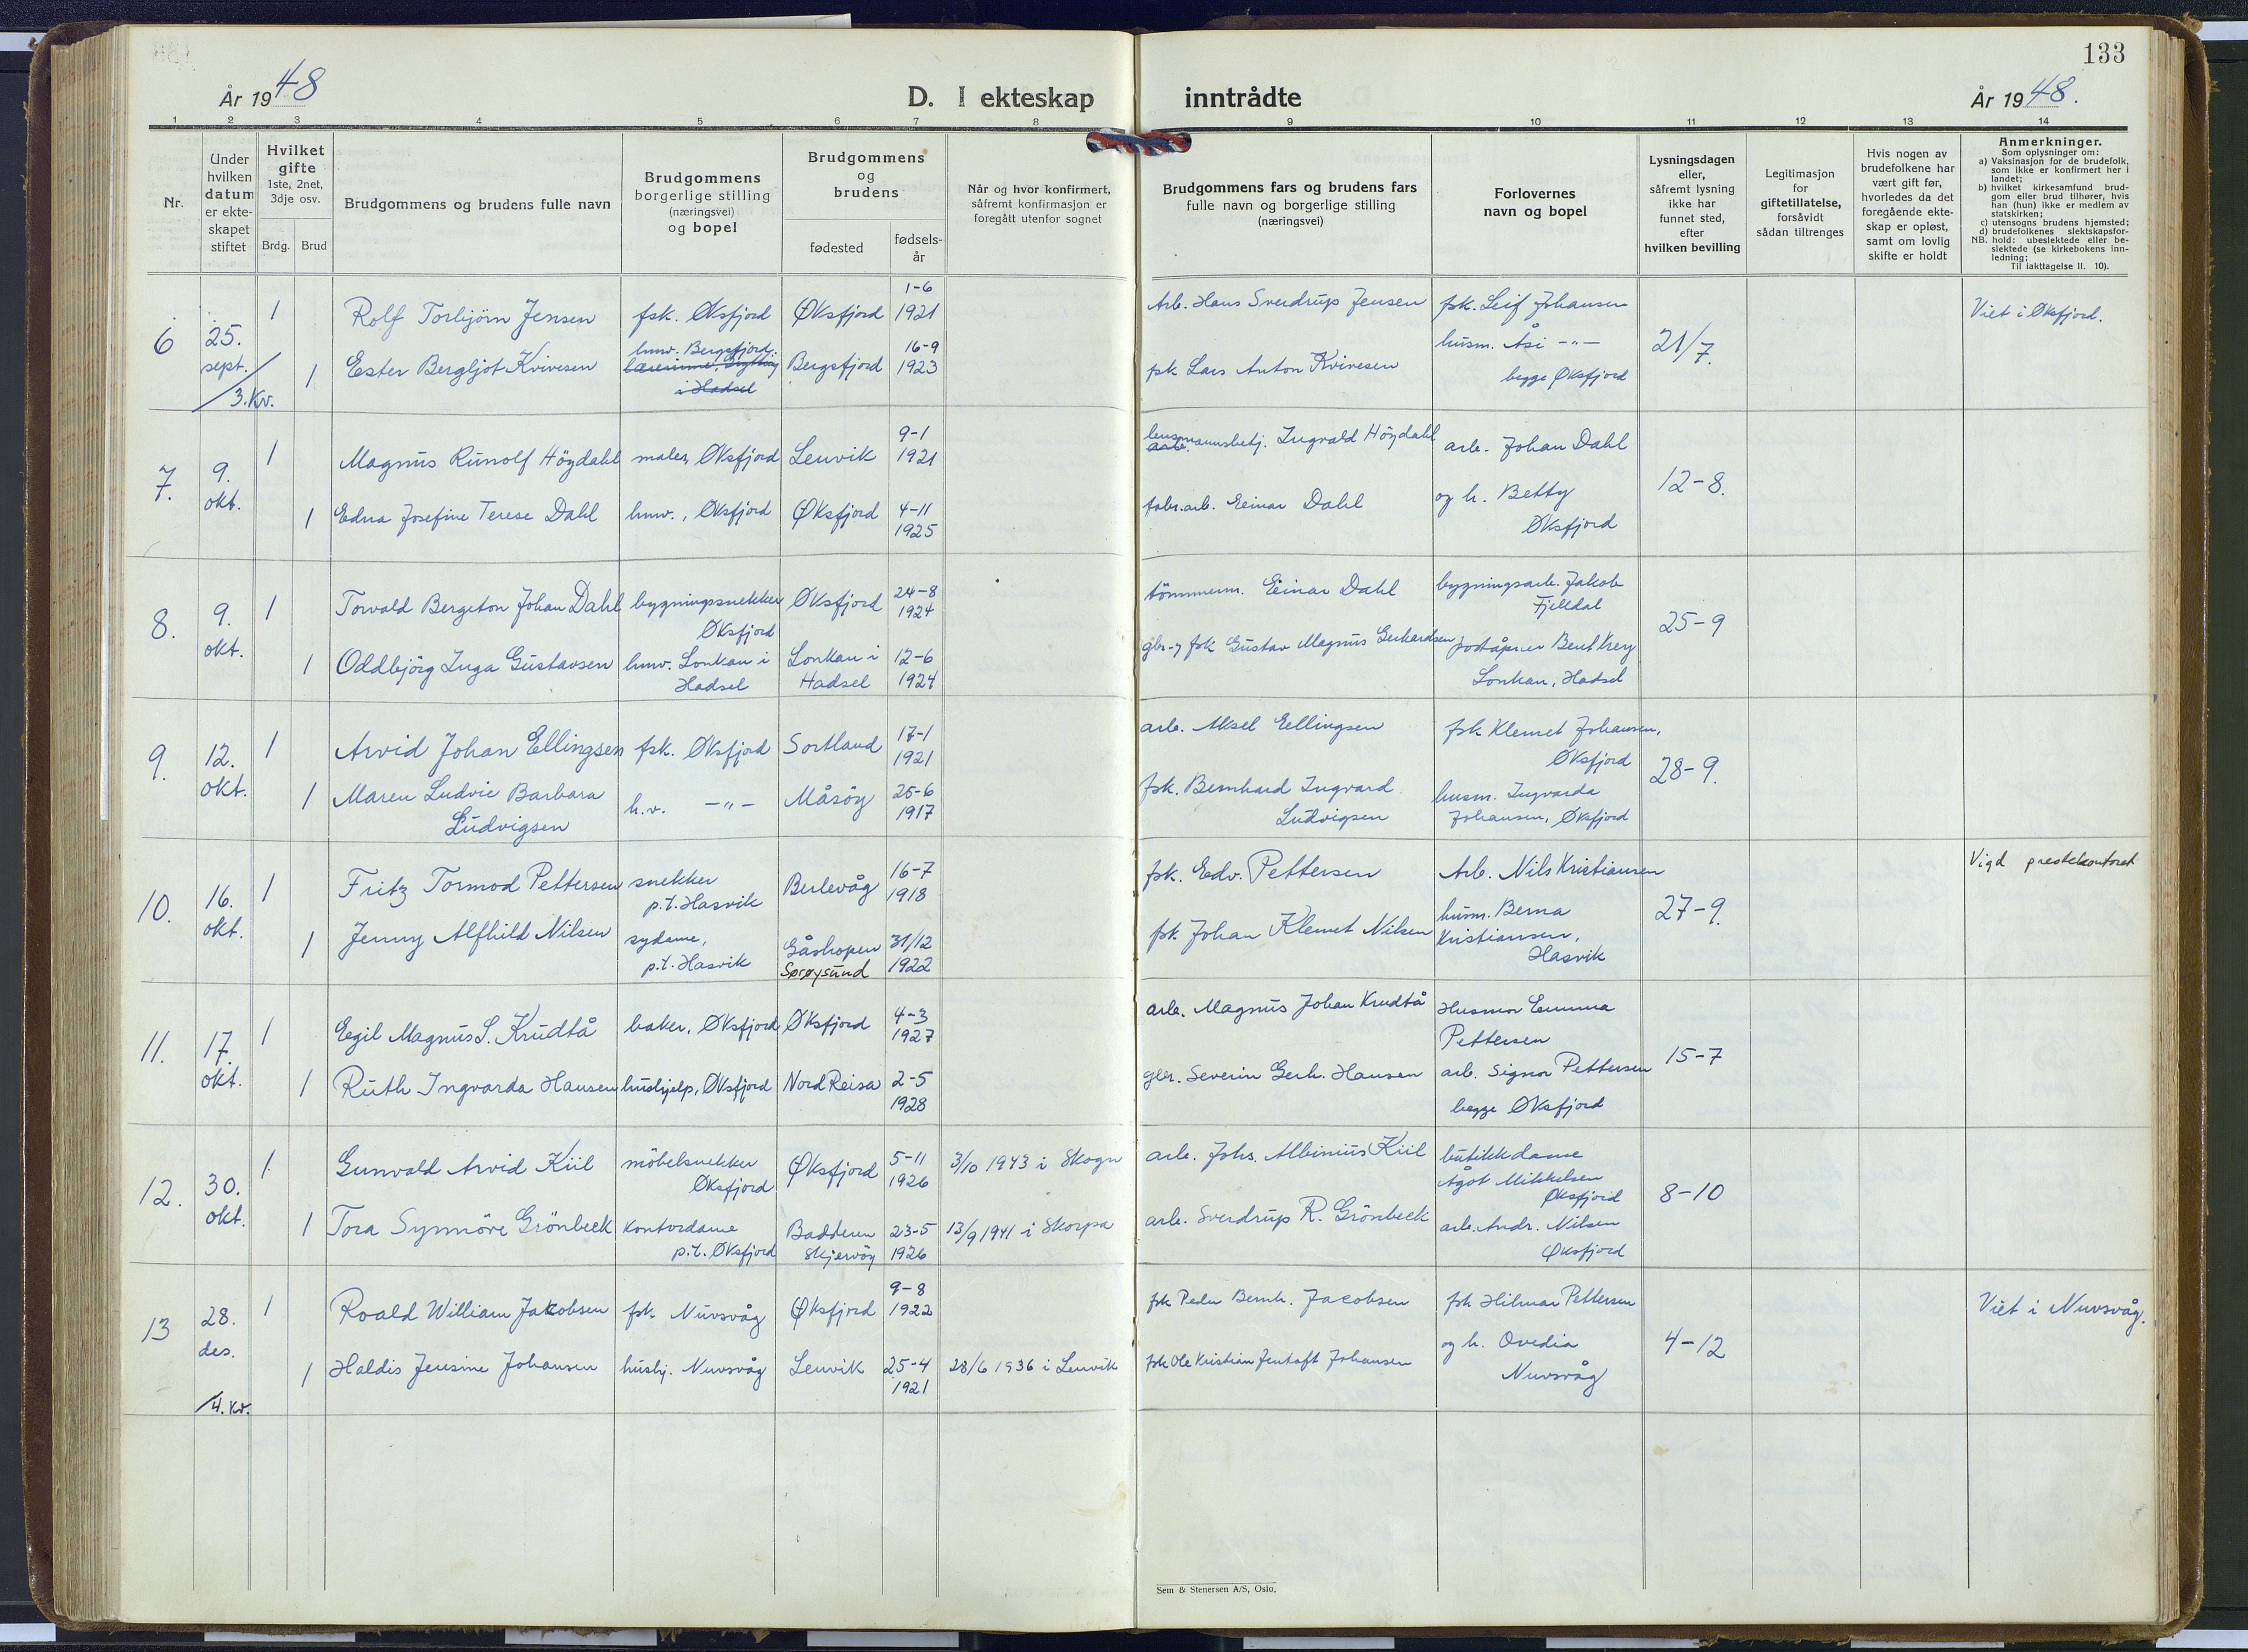 133
År 1948
D. I ekteskap inntrådte
År 1948.
1 2 3 4 5 6 7 8 9 10 11 12 13 14
Nr.
Under
hvilken
datum
er ekte-
skapet
stiftet
Hvilket
gifte
1ste, 2net,
3dje osv.
Brdg. Brud
Brudgommens og brudens fulle navn
Brudgommens
borgerlige stilling
(næringsvei)
og bopel
Brudgommens
og
brudens
fødested
fødsels-
år
Når og hvor konfirmert,
såfremt konfirmasjon er
foregått utenfor sognet
Brudgommens fars og brudens fars
fulle navn og borgerlige stilling
(næringsvei)
Forlovernes
navn og bopel
Lysningsdagen
eller,
såfremt lysning
ikke har
funnet sted,
efter
hvilken bevilling
Legitimasjon
for
giftetillatelse,
forsåvidt
sådan tiltrenges
Hvis nogen av
brudefolkene har
vært gift før,
hvorledes da det
foregående ekte-
skap er opløst,
samt om lovlig
skifte er holdt
Anmerkninger.
Som oplysninger om:
a) Vaksinasjon for de brudefolk,
som ikke er konfirmert her i
landet;
b) hvilket kirkesamfund brud-
gom eller brud tilhører, hvis
han (hun) ikke er medlem av
statskirken;
c) utensogns brudens hjemsted;
d) brudefolkenes slektskapsfor-
hold: ubeslektede eller be-
slektede (se kirkebokens inn-
ledning;
NB. Til iakttagelse II. 10).
6 25. sept. 3. Kv.
1 Rolf Torbjörn Jensen fsk. Øksfjord Øksfjord 1-6 1921
Arb. Hans Sverdrup Jensen fsk. Leif Johansen
21/7. Viet i Øksfjord.
1 Ester Bergljot Kvivesen hmv. Bergsfjord
i Hadsel
Bergsfjord 16-9 1923
fsk Lars Anton Kvivesen husm. Åsi -"-
begge Øksfjord
7. 9. okt.
1 Magnus Runolf Höydahl maler, Øksfjord Lenvik 9-1 1921
lensmannsbetj. Ingvald Höydahl arb. Johan Dahl
12-8.
1 Edna Josefine Terese Dahl hmv., Øksfjord Øksfjord 4-11 1925
fabr.arb. Einar Dahl og h. Betty
Øksfjord
8. 9. okt.
1 Torvald Bergeton Johan Dahl bygningssnekker
Øksfjord
Øksfjord 24-8 1924
tömmerm. Einar Dahl bygningsarb. Jakob
Fjelldal
25-9
1 Oddbjörg Inga Gustavsen hmv. Lonkan i
Hadsel
Lonkan i
Hadsel
12-6 1924
gbr. og fsk Gustav Magnus Gerhardsen poståpner Bent Krey
Lonkan, Hadsel
9. 12. okt.
1 Arvid Johan Ellingsen fsk. Øksfjord Sortland 17-1 1921
arb. Aksel Ellingsen fsk Klemet Johansen,
Øksfjord
28-9.
1 Maren Ludvie Barbara
Ludvigsen
h.v. -"- Måsöy 25-6 1917
fsk. Bernhard Ingvard
Ludvigsen
husm. Ingvarda
Johansen, Øksfjord
10. 16. okt.
1 Fritz Tormod Pettersen snekker
p.t. Hasvik
Berlevåg 16-7 1918
fsk. Edv. Pettersen Arb. Nils Kristiansen
27-9. Vigd prestekontoret
1 Jenny Alfhild Nilsen sydame,
p.t. Hasvik
Gåshopen
Sørøysund
31/12 1922
fsk. Johan Klemet Nilsen husm. Berna
Kristiansen,
Hasvik
11. 17. okt.
1 Egil Magnus S. Krudtå baker, Øksfjord Øksfjord 4-3 1927
arb. Magnus Johan Krudtå Husmor Emma
Pettersen
15-7
1 Ruth Ingvarda Hansen hushjelp, Øksfjord Nord Reisa 2-5 1928
gbr. Severin Gerh. Hansen arb. Signor Pettersen
begge Øksfjord
12. 30. okt.
1 Gunvald Arvid Kiil möbelsnekker
Øksfjord
Øksfjord 5-11 1926 3/10 1943 i Skogn
arb. Johs. Albinius Kiil butikkdame
Ågot Mikkelsen
Øksfjord
8-10
1 Tora Synnöve Grönbeck kontordame
p.t. Øksfjord
Badderen
Skjervöy
23-5 1926 13/9 1941 i Skorpa
arb. Sverdrup R. Grönbeck arb. Andr. Nilsen
Øksfjord
13 28. des. 4. kv.
1 Roald William Jakobsen fsk. Nuvsvåg Øksfjord 9-8 1922
fsk Peder Bernh. Jacobsen fsk Hilmar Pettersen
4-12 Viet i Nuvsvåg.
1 Haldis Jensine Johansen hushj. Nuvsvåg Lenvik 25-4 1921 28/6 1936 i Lenvik
fsk Ole Kristian Jentoft Johansen og h. Ovedia
Nuvsvåg
Sem & Stenersen A/S, Oslo.